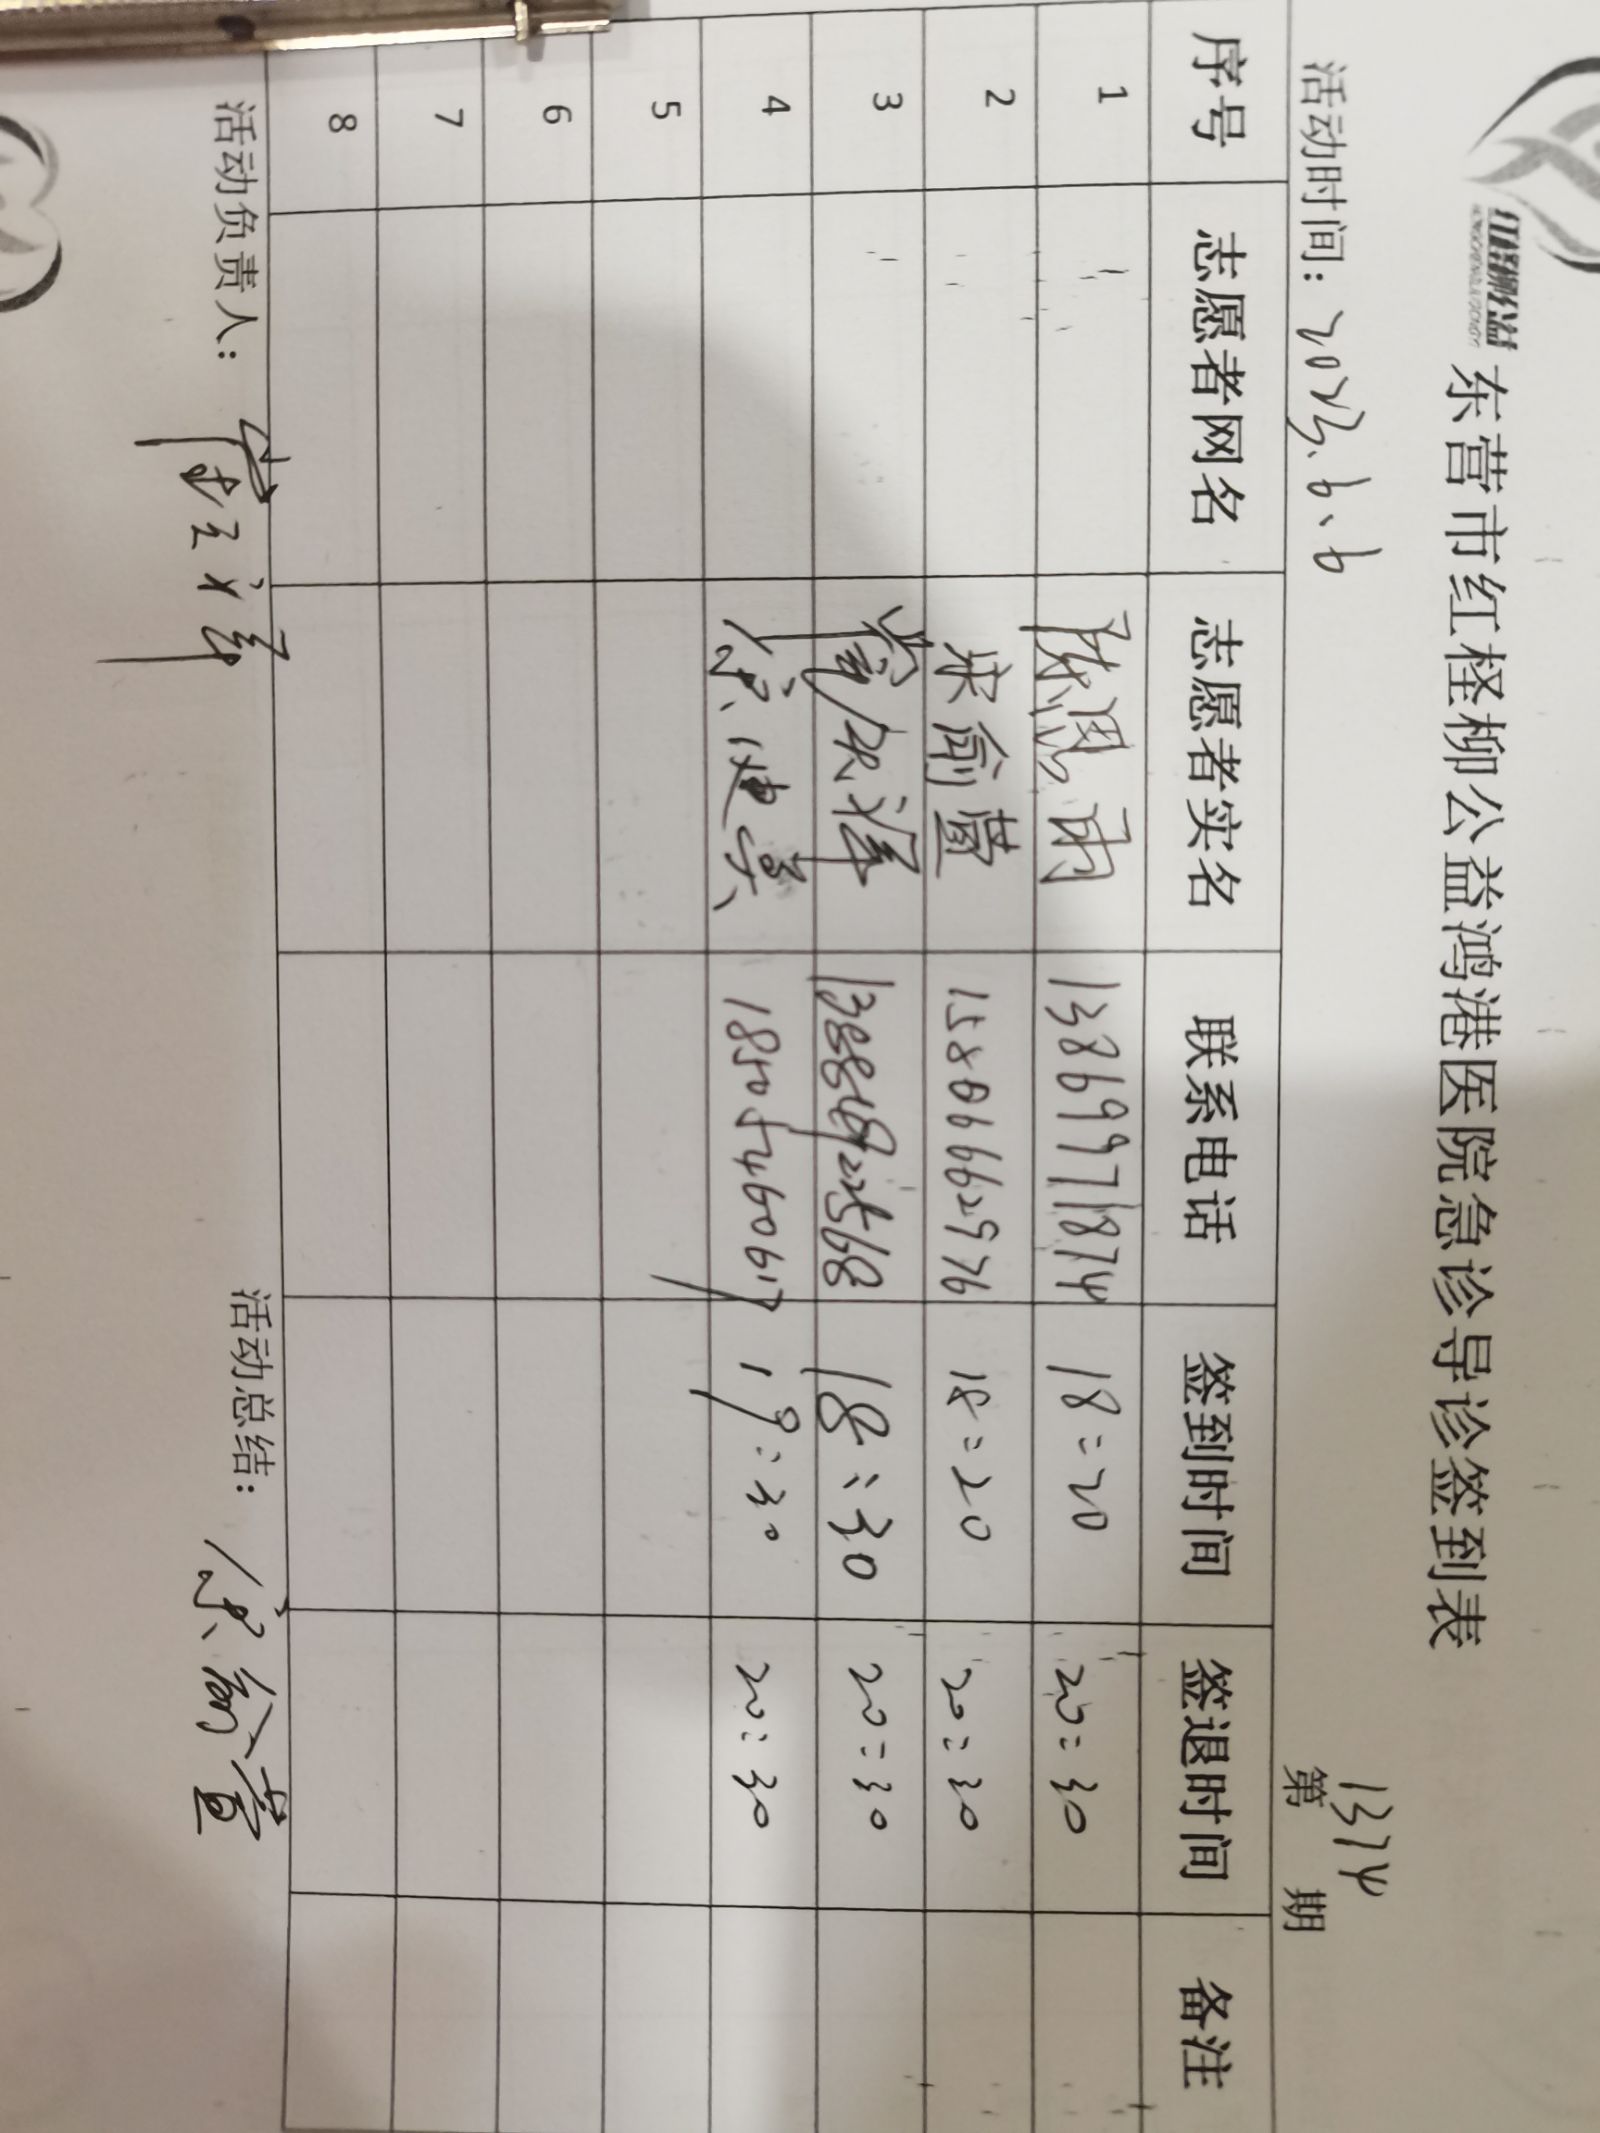 红柽柳公益
东营市红柽柳公益鸿港医院急诊导诊签到表
活动时间：2023.6.6 第1374期
序号 志愿者网名 志愿者实名 联系电话 签到时间 签退时间 备注
1 陈思雨 13869971874 18:20 20:30
2 宋俞萱 15806662976 18:20 20:30
3 18:30 20:30
4 徐建英 18505460617 19:30 20:30
5
6
7
8
活动负责人： 活动总结：